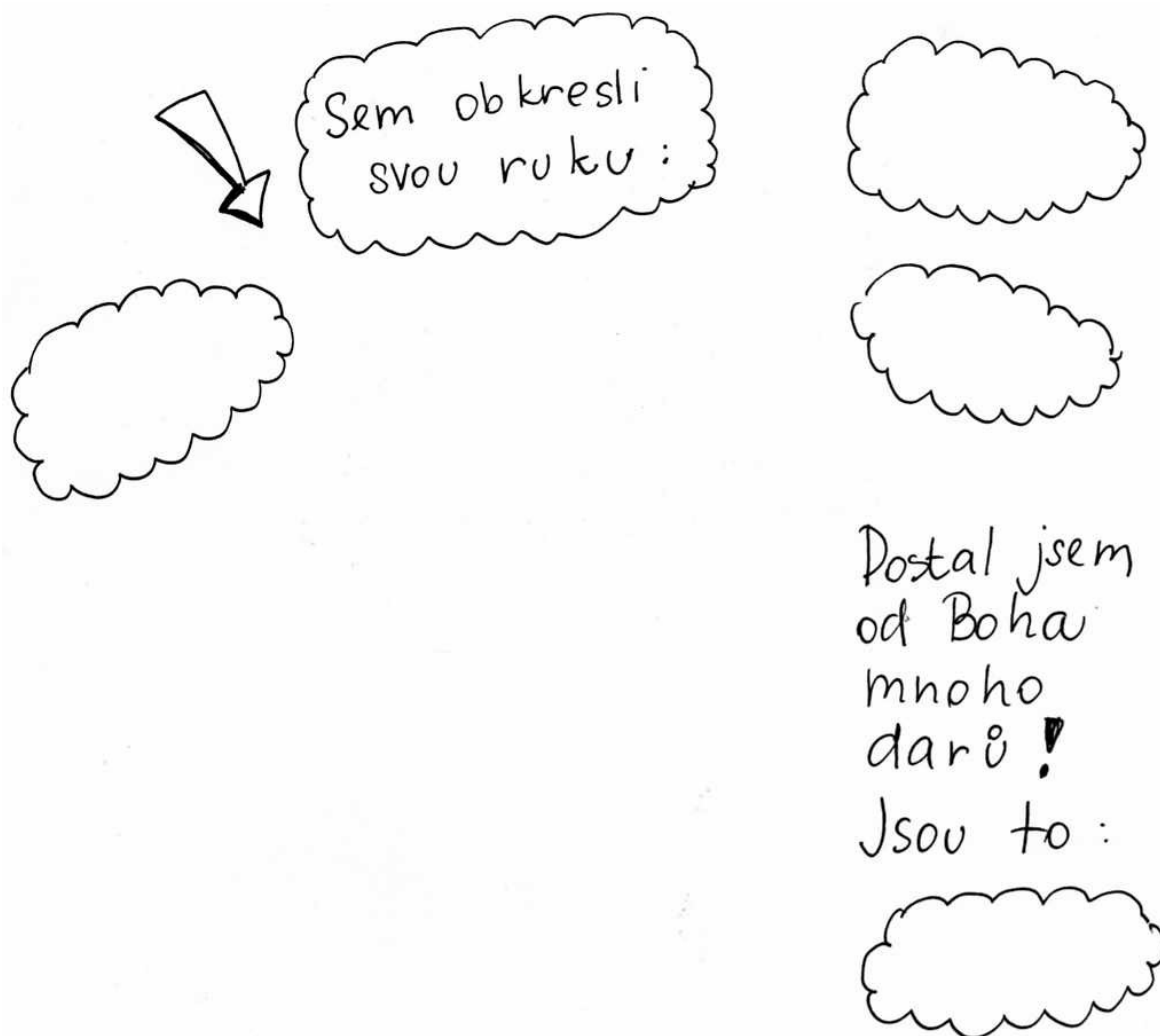 Sem obkresli
svou ruku:
Dostal jsem
od Boha
mnoho
darů!
Jsou to: